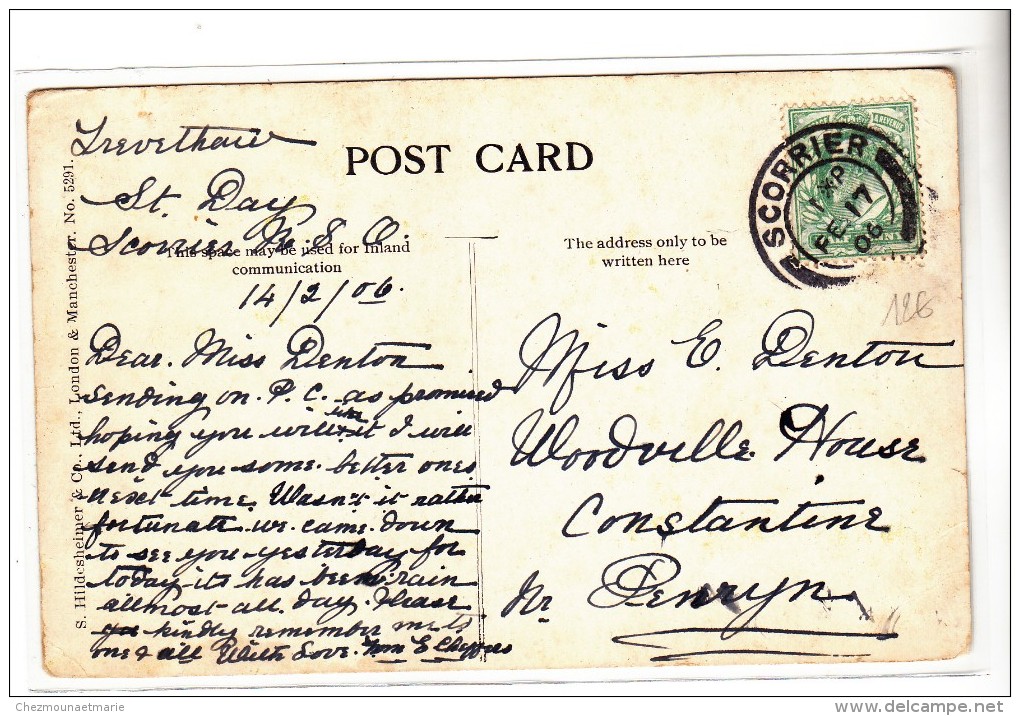 Trevethan
St. Day
Scorrier R. S. O.
POST CARD
This space may be used for Inland
communication
The address only to be
written here
14/2/06.
Dear. Miss Denton
sending on. P. C. as promised
hoping you will like it I will
send you some. better ones
next time. Wasn't it rather
fortunate we. came. down
to see you yesterday for
today its has been rain
allmost all. day. Please
kindly remember me to
one & all With Love.
Miss E. Denton
Woodville House
Constantine
Nr Penryn
S. Hildesheimer & Co., Ltd., London & Manchester. No. 5291.
SCORRIER
FE 17
06
126
Chezmounaetmarie
www.delcampe.net